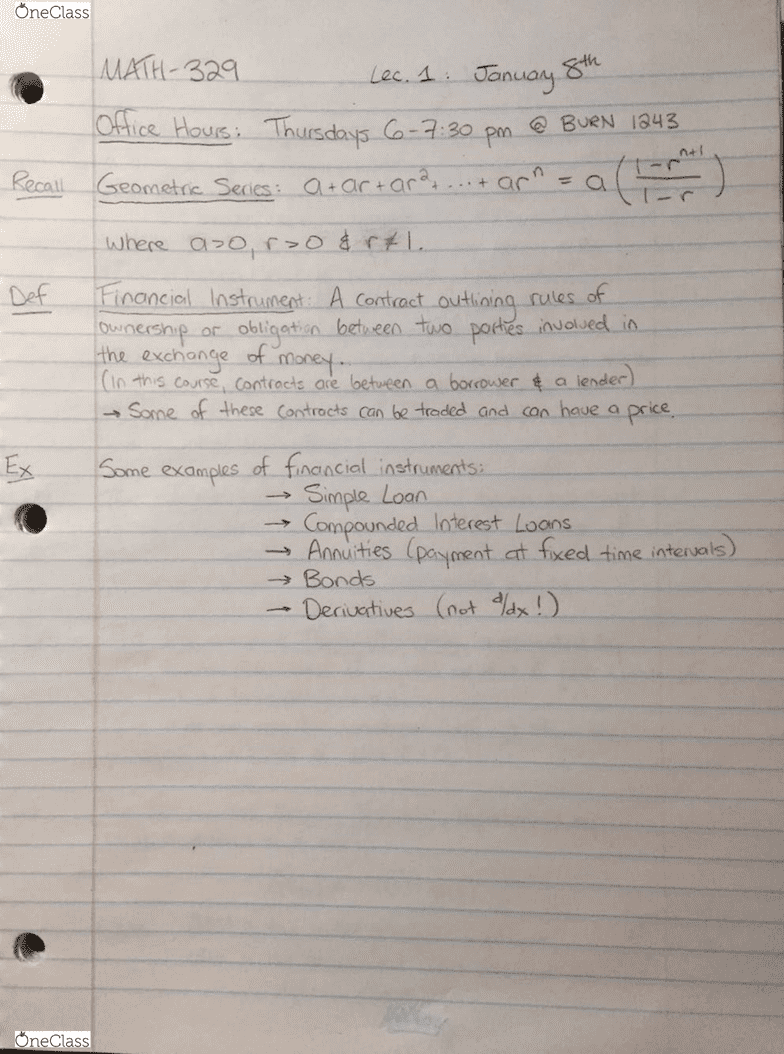 OneClass
MATH-329 Lec. 1: January 8th
Office Hours: Thursdays 6-7:30 pm @ BURN 1243
Recall Geometric Series: a + ar + ar² + ... + arⁿ = a((1-rⁿ⁺¹)/(1-r))
where a>0, r>0 & r≠1.
Def Financial Instrument: A contract outlining rules of
ownership or obligation between two parties involved in
the exchange of money.
(In this course, contracts are between a borrower & a lender)
→ Some of these contracts can be traded and can have a price.
Ex Some examples of financial instruments:
→ Simple Loan
→ Compounded Interest Loans
→ Annuities (payment at fixed time intervals)
→ Bonds
→ Derivatives (not d/dx!)
OneClass